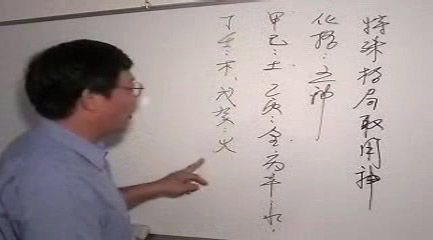 特殊格局取用神
化格:五神
甲己:土.乙庚:金.丙辛:水.
丁壬:木.戊癸:火